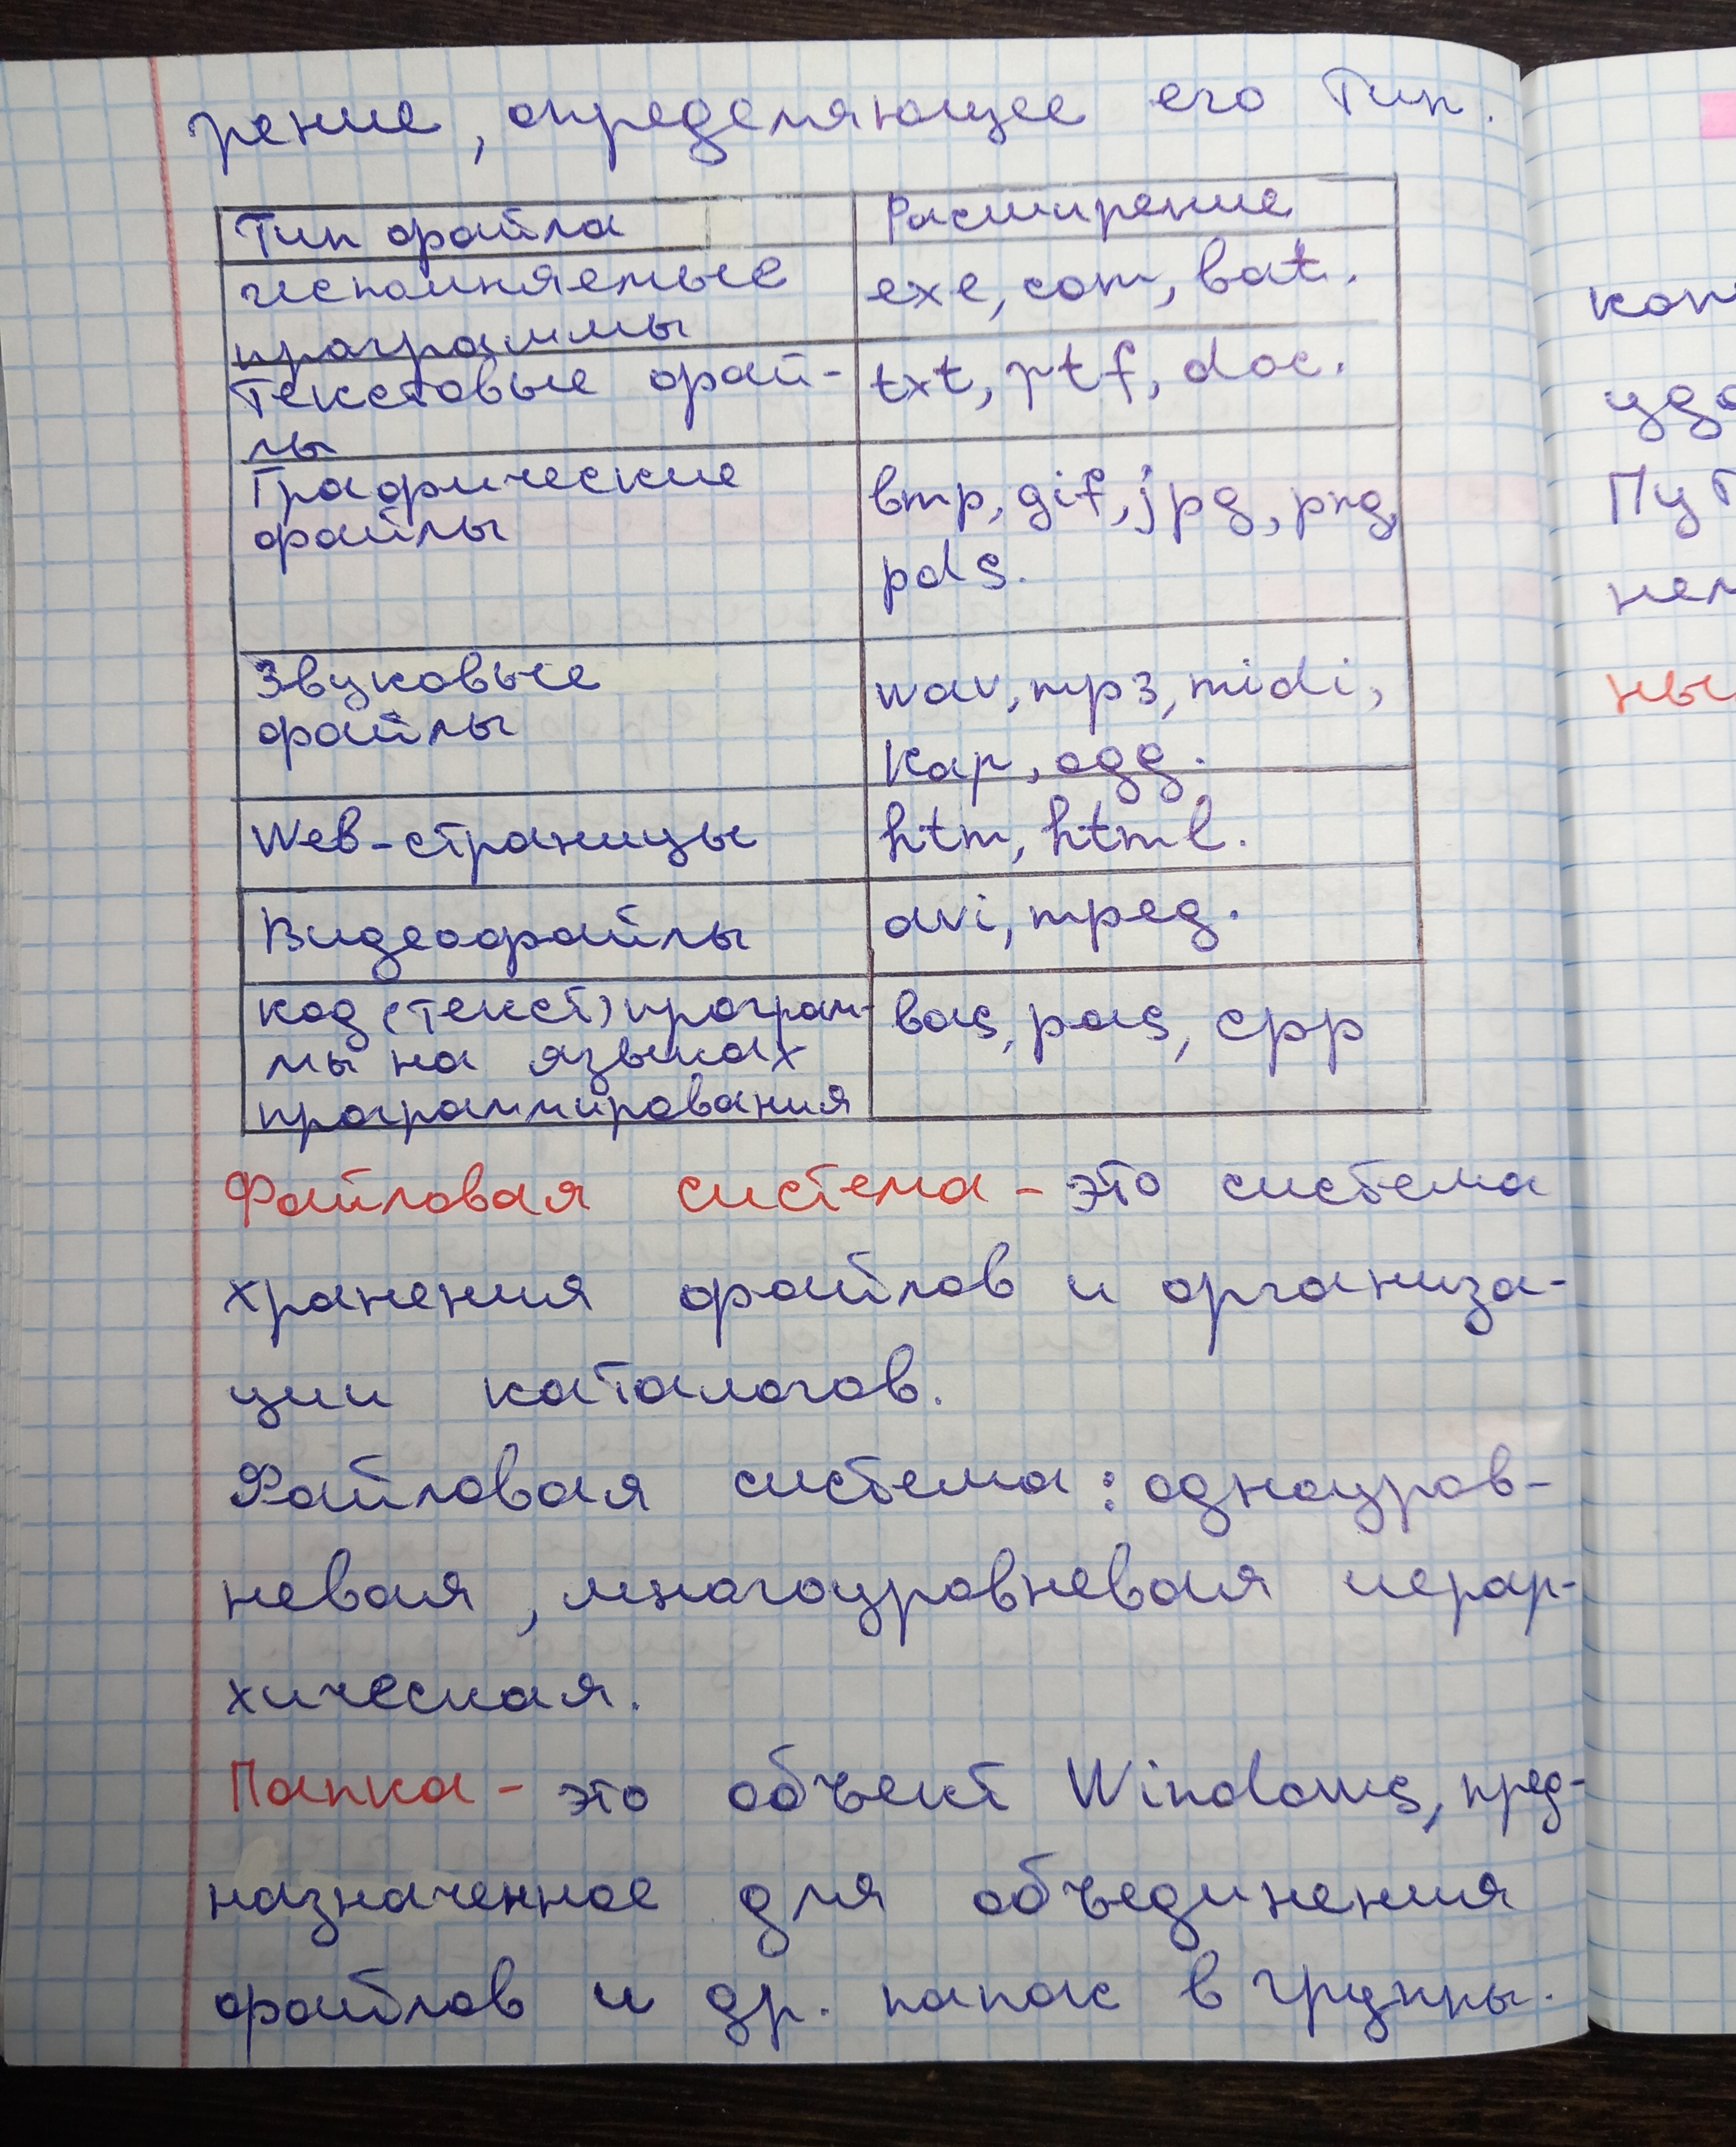 рение, определяющее его Тип.
Тип файла
Расширение
исполняемые
программы
exe, com, bat.
Текстовые фай-
лы
txt, rtf, doc.
Графические
файлы
bmp, gif, jpg, png,
pds.
Звуковые
файлы
wav, mp3, midi,
kar, ogg.
Web-страницы
htm, html.
Видеофайлы
avi, mpeg.
код (текст) програм-
мы на языках
программирования
bas, pas, cpp
Файловая система - это система
хранения файлов и организа-
ции каталогов.
Файловая система: одноуров-
невая, многоуровневая иерар-
хическая.
Папка - это объект Windows, пред-
назначенное для объединения
файлов и др. папок в группы.